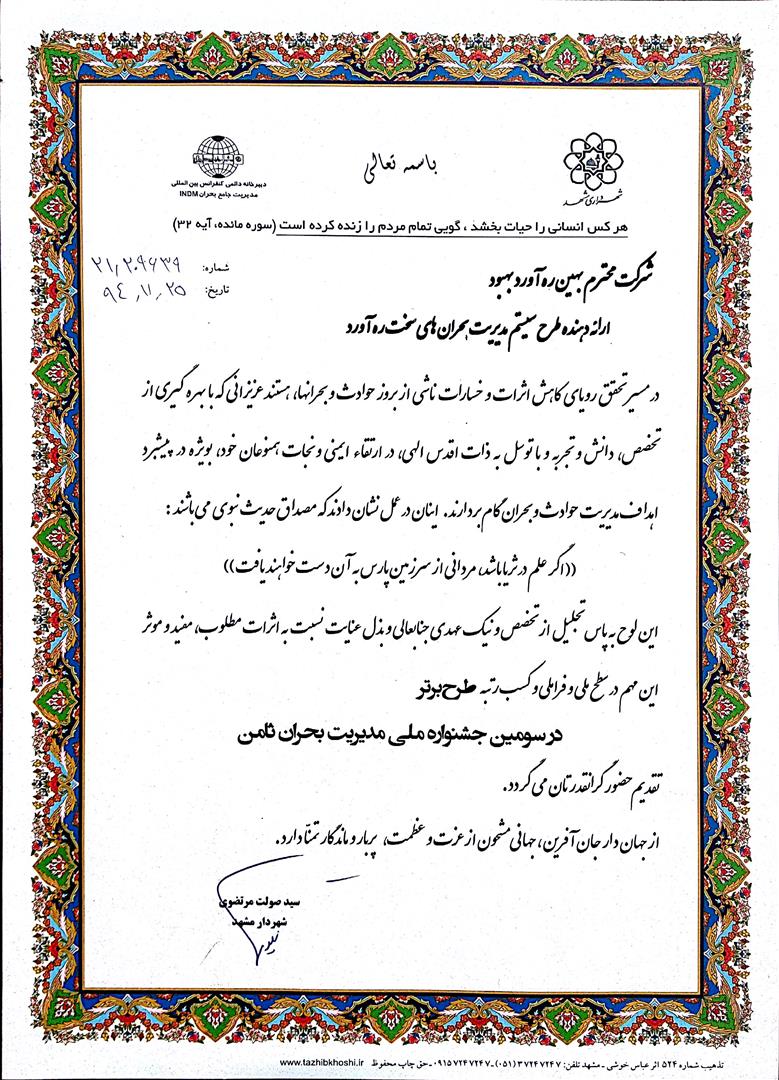 باسمه تعالی
شهرداری مشهد
دبیرخانه دائمی کنفرانس بین المللی
مدیریت جامع بحران INDM
هر کس انسانی را حیات بخشد ، گویی تمام مردم را زنده کرده است (سوره مائده، آیه ۳۲)
شماره: ۲۱٫۲۰۹۶۳۹
تاریخ: ۹۴٫۱۱٫۲۵
شرکت محترم بهین ره آورد بهبود
ارائه دهنده طرح سیستم مدیریت بحران های سخت ره آورد
در مسیر تحقق رویای کاهش اثرات و خسارات ناشی از بروز حوادث و بحرانها، هستند عزیزانی که با بهره گیری از
تخصص، دانش و تجربه و با توسل به ذات اقدس الهی، در ارتقاء ایمنی و نجات همنوعان خود، بویژه در پیشبرد
اهداف مدیریت حوادث و بحران گام بردارند. اینان در عمل نشان دادند که مصداق حدیث نبوی می باشند :
((اگر علم در ثریا باشد، مردانی از سرزمین پارس به آن دست خواهند یافت))
این لوح به پاس تجلیل از تخصص و نیک عهدی جنابعالی و بذل عنایت نسبت به اثرات مطلوب، مفید و موثر
این مهم در سطح ملی و فراملی و کسب رتبه طرح برتر
در سومین جشنواره ملی مدیریت بحران ثامن
تقدیم حضور گرانقدرتان می گردد.
از جهان دار جان آفرین، جهانی مشحون از عزت و عظمت، پربار و ماندگار تمنّا دارد.
سید صولت مرتضوی
شهردار مشهد
تذهیب شماره ۵۲۴ اثر عباس خوشی - مشهد تلفن: ۳۷۲۴۷۲۴۷ (۰۵۱)-۰۹۱۵۷۲۴۷۲۴۷-حق چاپ محفوظ www.tazhibkhoshi.ir